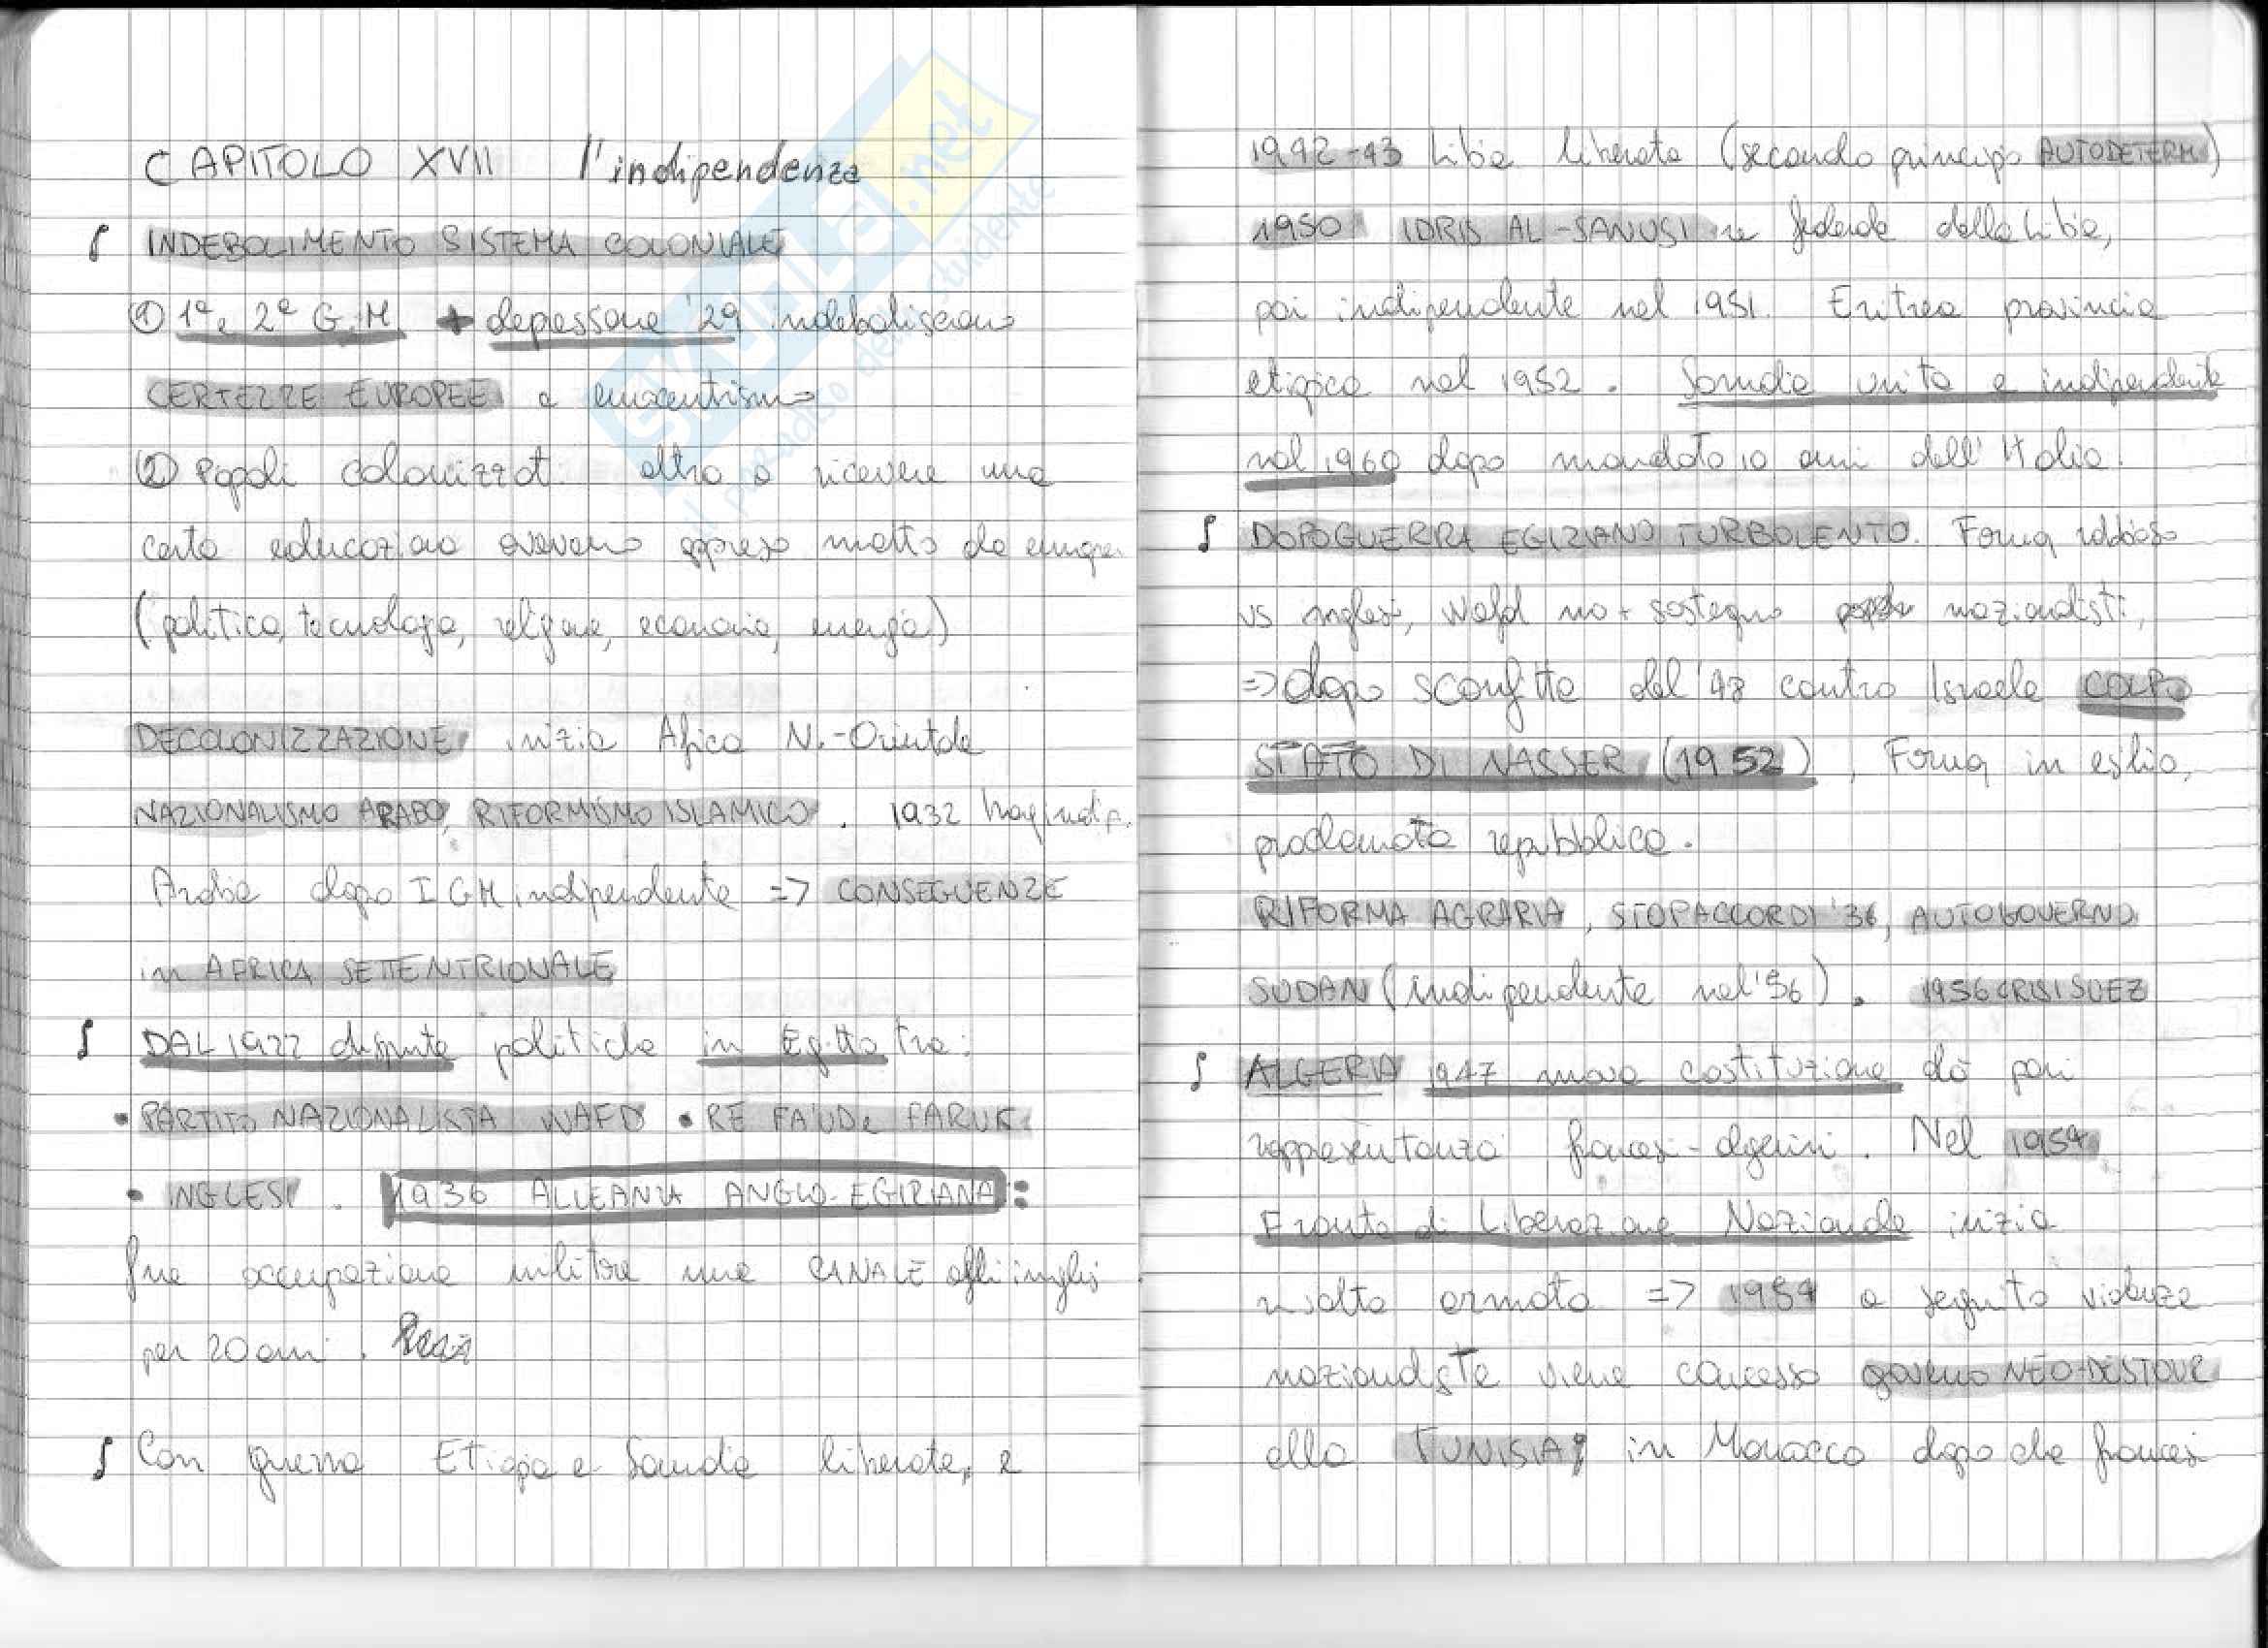 CAPITOLO XVII l'indipendenza
INDEBOLIMENTO SISTEMA COLONIALE
① 1ª e 2ª G.M. + depressione '29 indeboliscono
CERTEZZE EUROPEE e eurocentrismo
② Popoli colonizzati oltre a ricevere una
certa educazione avevano appreso molto da europei
(politica, tecnologia, religione, economia, energia)
DECOLONIZZAZIONE inizia Africa N.-Orientale
NAZIONALISMO ARABO, RIFORMISMO ISLAMICO. 1932 Iraq indip.
Arabia dopo I GM indipendente => CONSEGUENZE
in AFRICA SETTENTRIONALE
DAL 1922 dispute politiche in Egitto tra:
• PARTITO NAZIONALISTA WAFD • RE FAUD e FARUK
• INGLESI. 1936 ALLEANZA ANGLO-EGIZIANA:
fine occupazione militare ma CANALE agli inglesi
per 20 anni.
Con guerra Etiopia e Somalia liberate, e
1942-43 Libia liberata (secondo principio AUTODETERM)
1950 IDRIS AL-SANUSI re federale della Libia,
poi indipendente nel 1951. Eritrea provincia
etiopica nel 1952. Somalia unita e indipendente
nel 1960 dopo mandato 10 anni dell'Italia.
DOPOGUERRA EGIZIANO TURBOLENTO. Faruq
vs inglesi, Wafd no + sostegno nazionalisti,
=> dopo sconfitta del '48 contro Israele COLPO
STATO DI NASSER (1952), Faruq in esilio,
proclamata repubblica.
RIFORMA AGRARIA, STOP ACCORDI '36, AUTOGOVERNO
SUDAN (indipendente nel '56). 1956 CRISI SUEZ
ALGERIA 1947 nuova costituzione dà pari
rappresentanza francesi-algerini. Nel 1954
Fronte di Liberazione Nazionale inizia
rivolta armata => 1954 a seguito violenze
nazionaliste viene concesso governo NEO-DESTOUR
alla TUNISIA; in Marocco dopo che francesi
SKUOLA.net
il paradiso dello studente